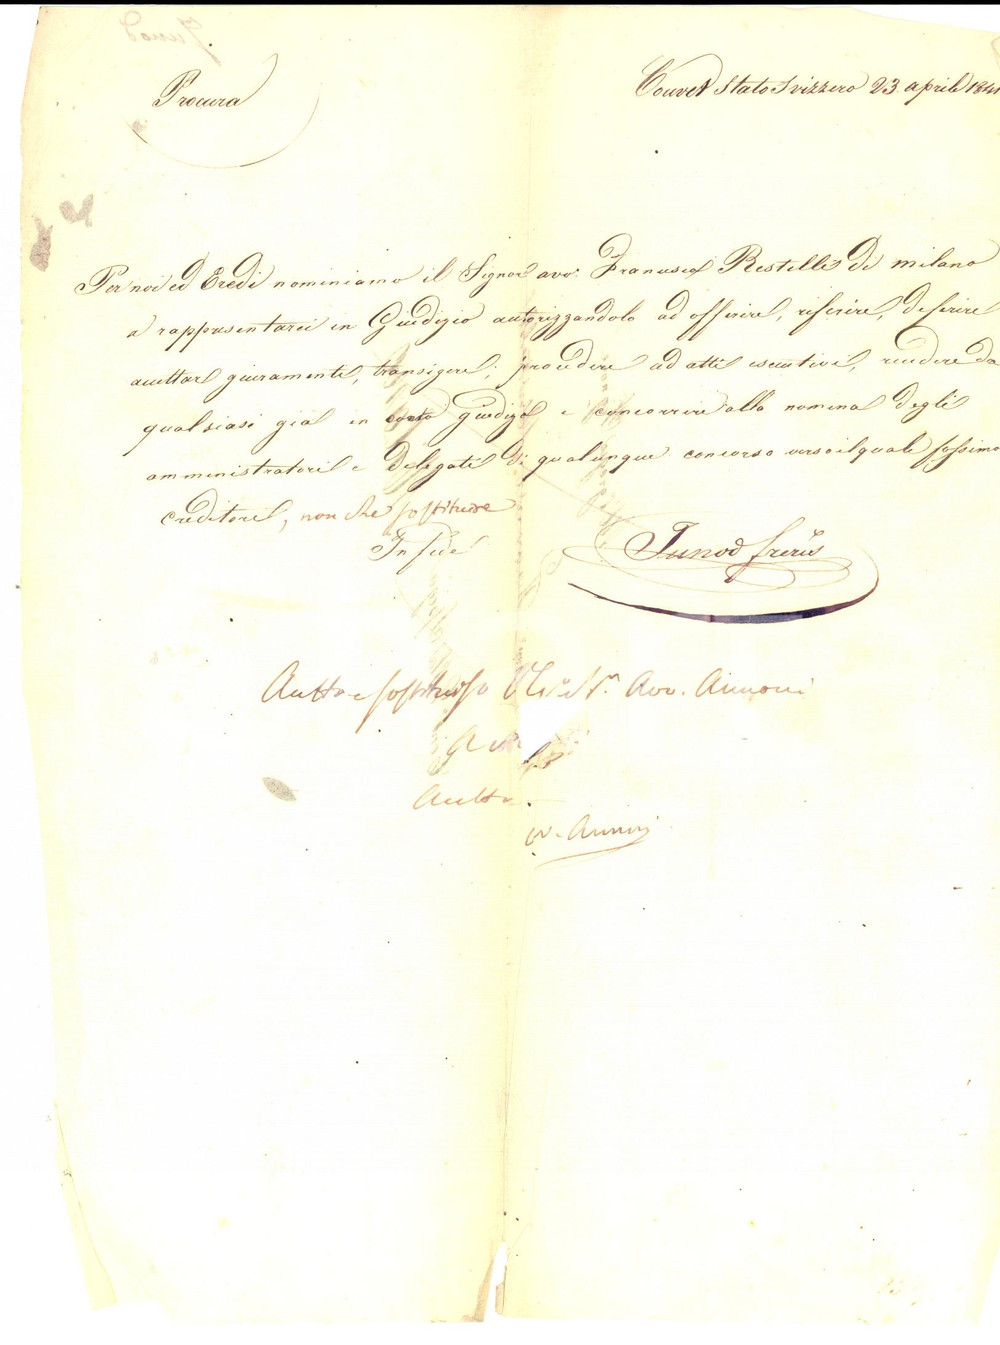 Junod
Procura
Couvet Stato Svizzero 23. aprile 1841
Per noi ed Eredi nominiamo il Signor avo. Francesco Restelli di milano
a rappresentarci in Giudizio autorizzandolo ad offerire, riferire, deferire
accettar giuramenti, transigere, procedere ad atti esecutivi, recedere da
qualsiasi già in corso giudizio e concorrire alla nomina degli
amministratori e delegati di qualunque concorso verso il quale fossimo
creditori, non che sostituire
In fede
Junod frères
Accetto e sostituisco Avv. Aimoni
Accetto.
Aimoni